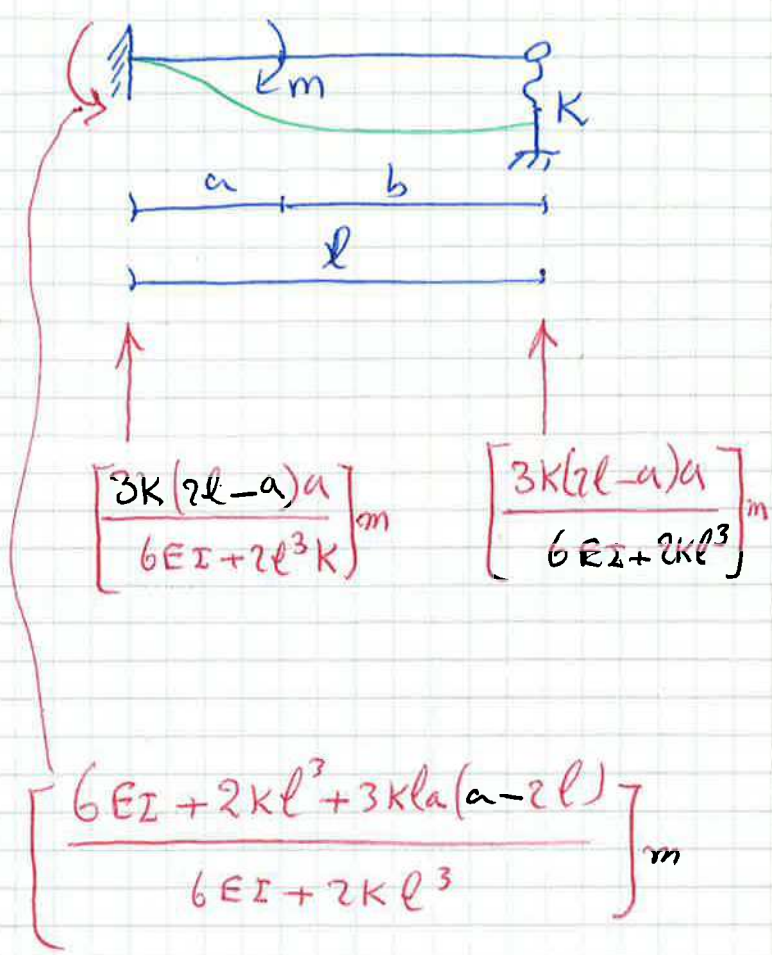 m
K
a b
l
[3K(2l-a)a / 6EI+2l³K] m [3K(2l-a)a / 6EI+2Kl³] m
[6EI+2Kl³+3Kla(a-2l) / 6EI+2Kl³] m